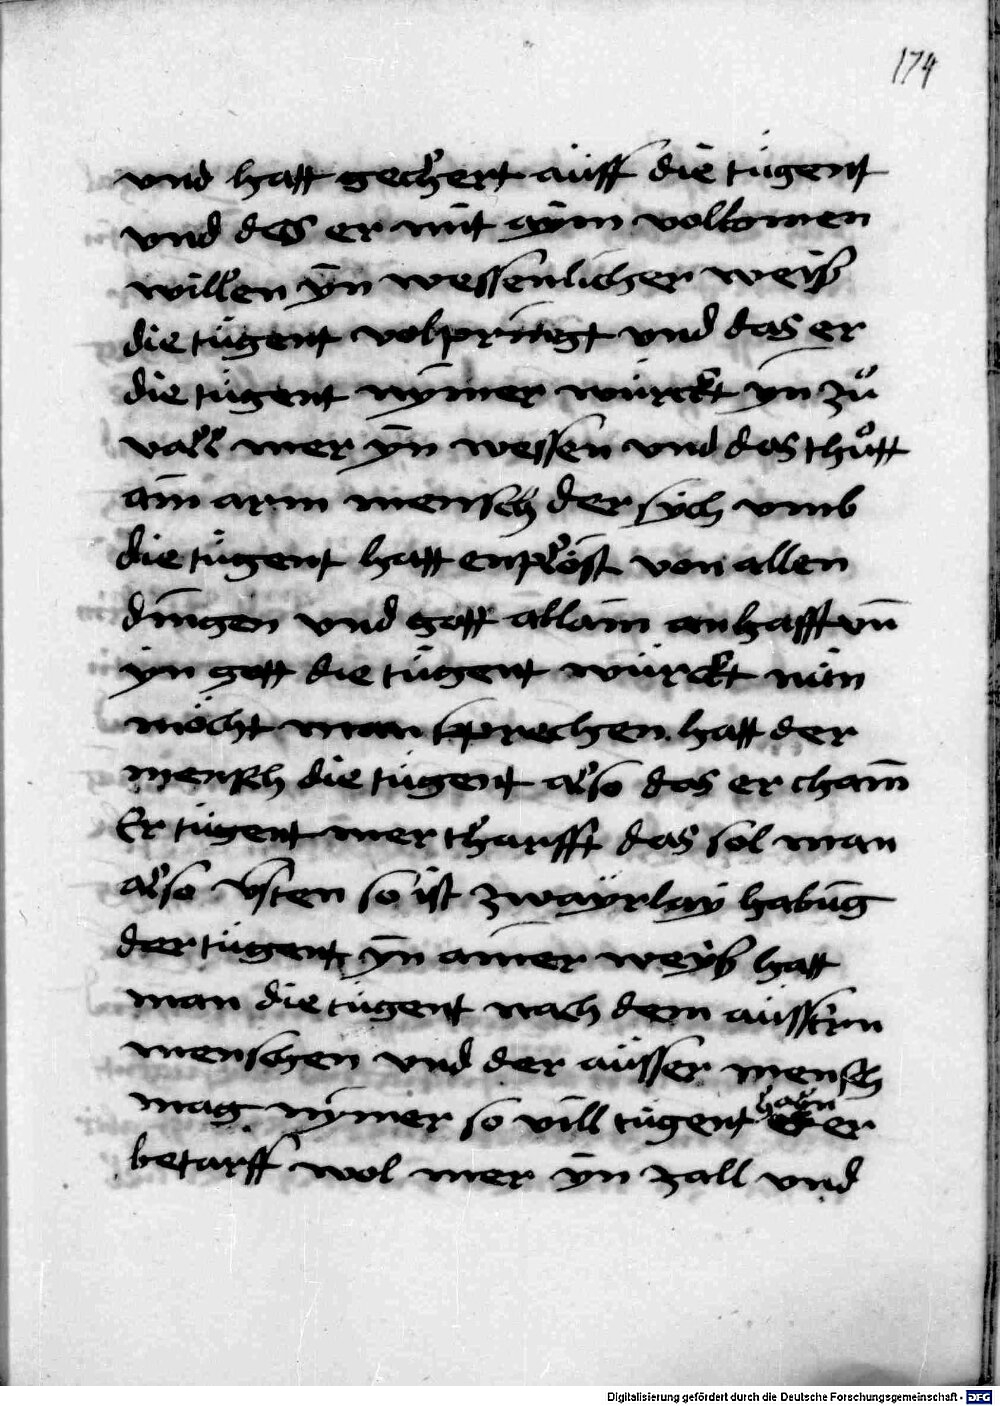 174
vnd hatt gechert auff die tügent
vnd des er mit aym volkomen
willen yn wessenlicher weiß
die tügent volpringt vnd das er
die tügent nymer würckt yn zů
vall mer yn wessen vnd das thůtt
ain arm mensch der sych vmb
die tügent hatt enplöst von allen
dingen vnd gott allain anhafft vn̄
yn gott die tügent würckt nun
möcht man sprechen hatt der
mensch die tügent also das er chainͤ
Er tügent mer tharfft das sol man
also v̄sten so ist zwayrlay habūg
der tügent yn ainer weyß hatt
man die tügent nach dem aussern
menschen vnd der ausser mensch
mag nymer so vill tügent habn er
betarff wol mer yn zall vnd
Digitalisierung gefördert durch die Deutsche Forschungsgemeinschaft - DFG